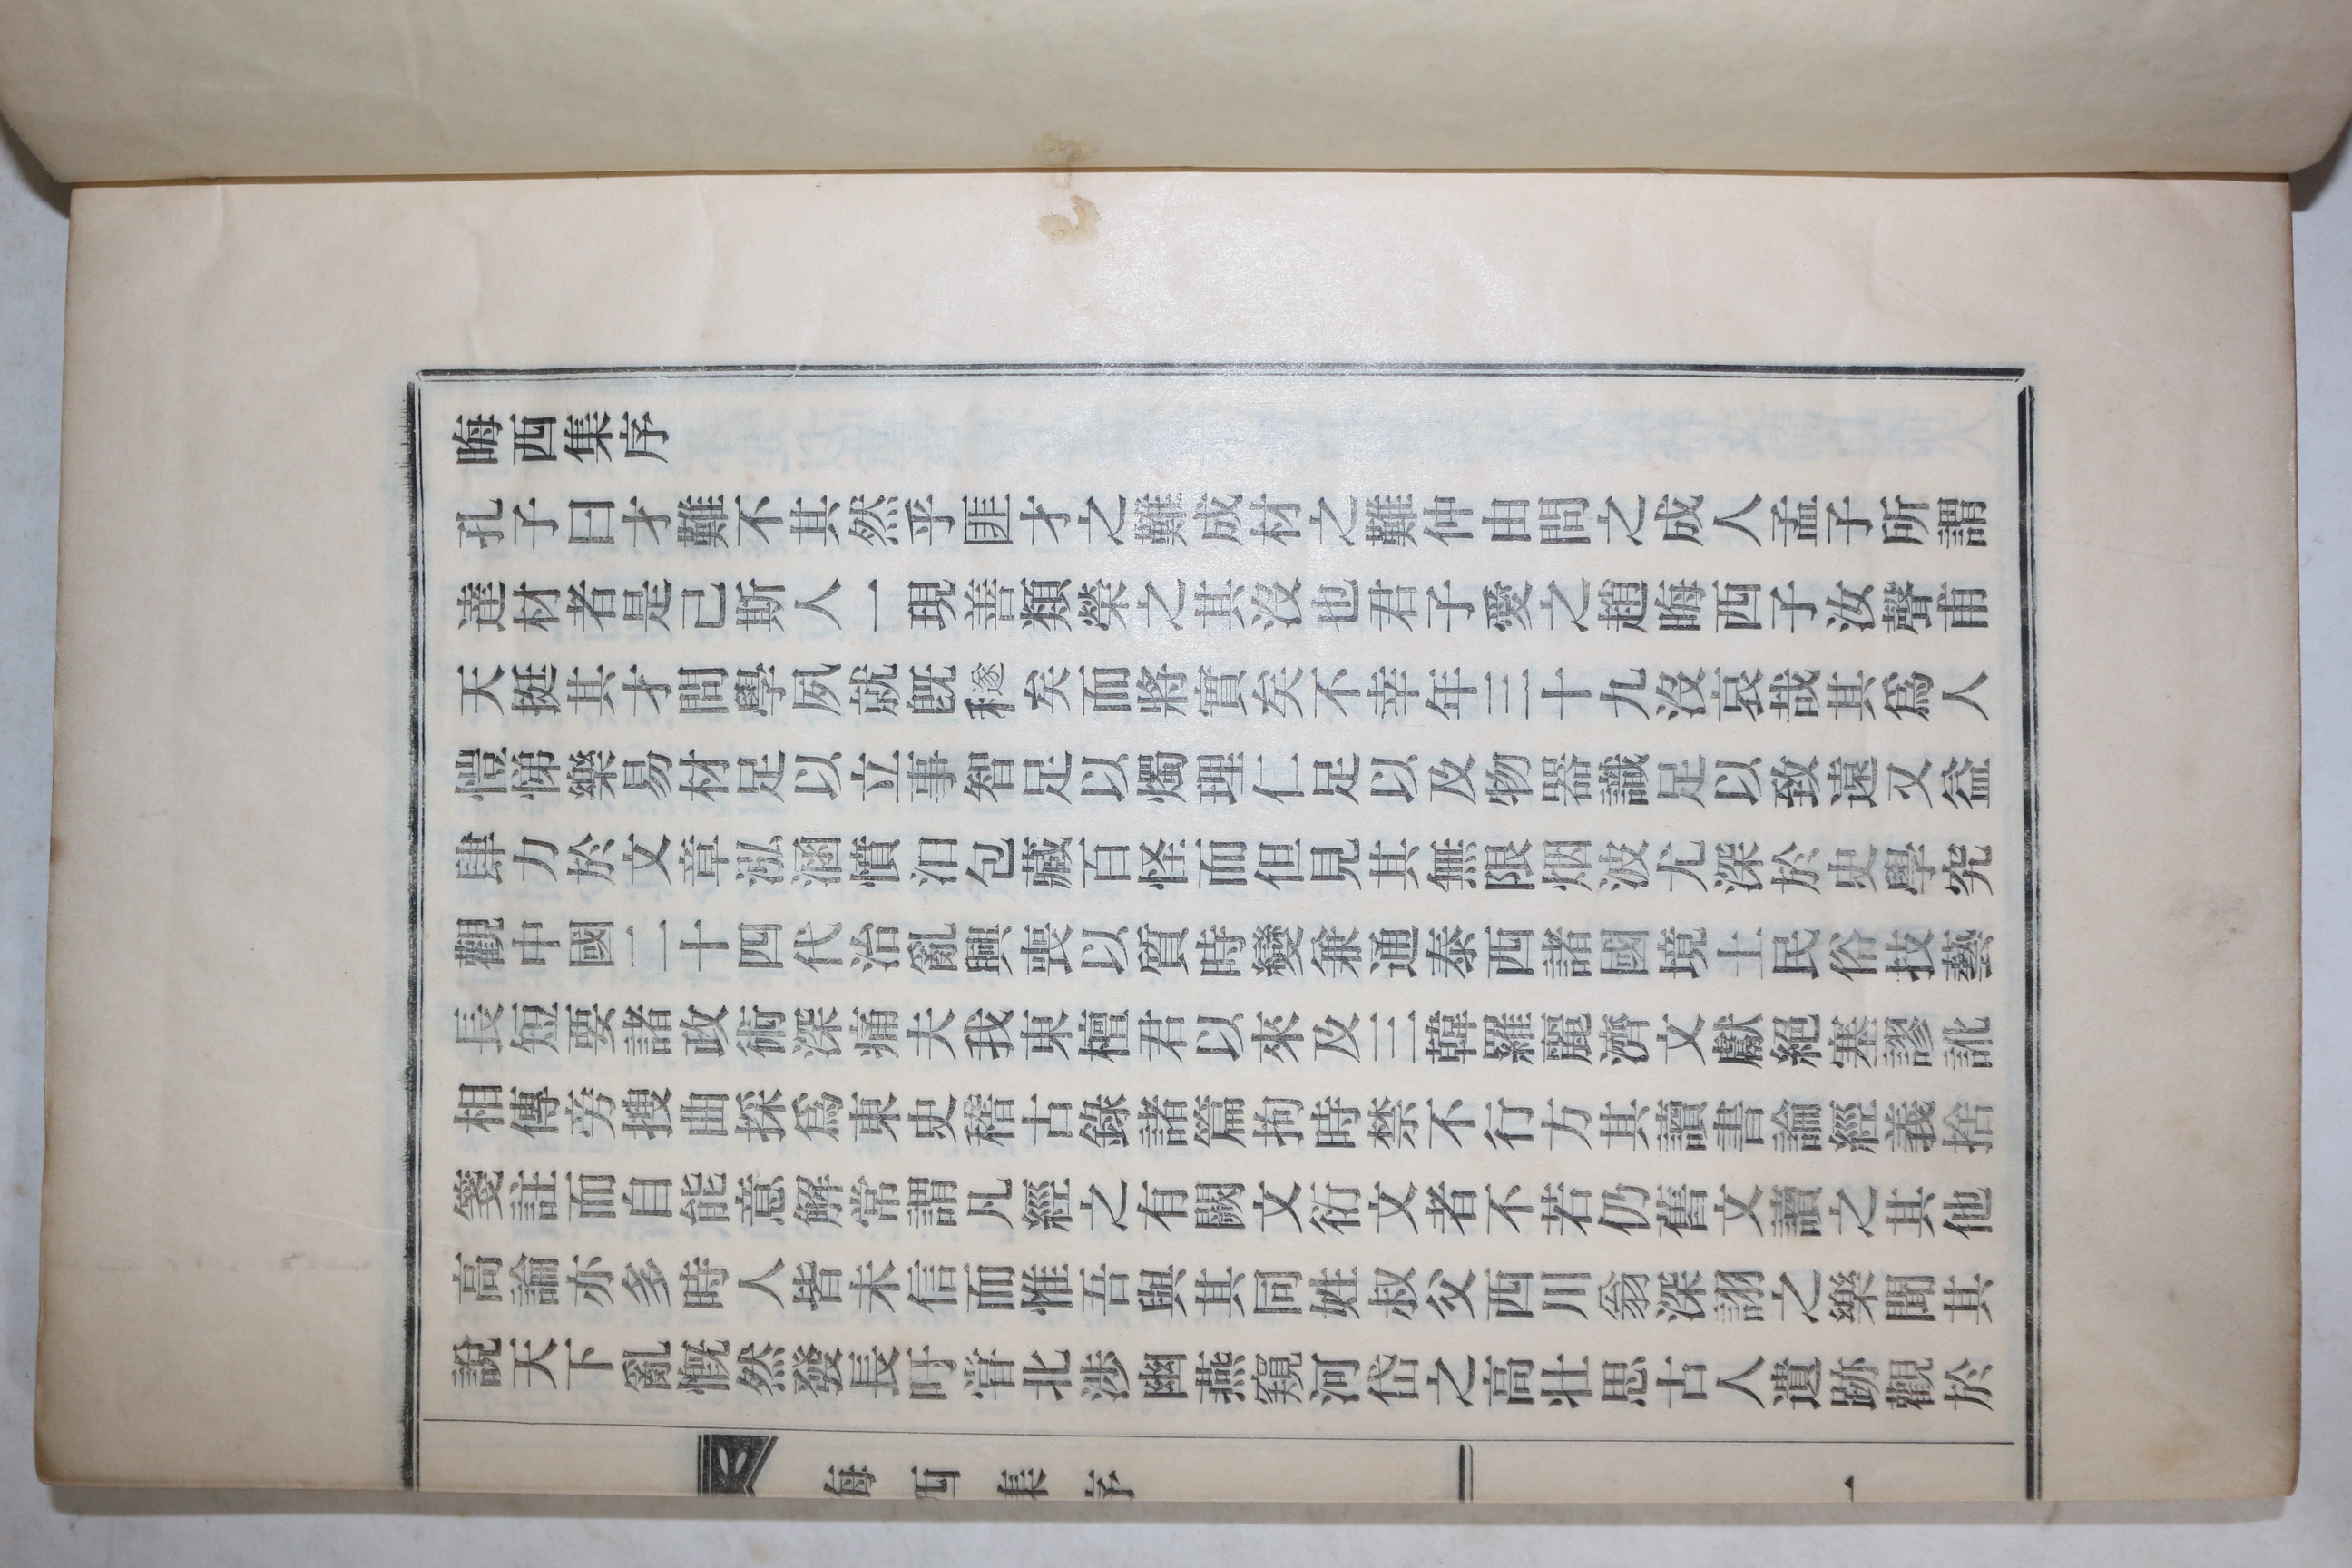 晦西集序
孔子曰才難不其然乎匪才之難成材之難仲由問之成人孟子所謂
達材者是己斯人一現善類榮之其沒也君子愛之趙晦西子汝聲甫
天挺其才問學夙就旣穟矣而將實矣不幸年三十九沒哀哉其爲人
愷悌樂易材足以立事智足以燭理仁足以及物器識足以致遠又益
肆力於文章泓涵憤汨包藏百怪而但見其無限烟波尤深於史學究
觀中國二十四代治亂興喪以質時變兼通泰西諸國境土民俗技藝
長短要諸政術深痛夫我東檀君以來及三韓羅麗濟文獻絕塞謬訛
相傳旁搜曲採爲東史稽古錄諸篇拘時禁不行方其讀書論經義捨
箋註而自能意解常謂凡經之有闕文衍文者不若仍舊文讀之其他
高論亦多時人皆未信而惟吾與其同姓叔父西川翁深詡之樂聞其
說天下亂慨然發長吁嘗北涉幽燕窺河岱之高壯思古人遺跡觀於
晦西集序
一